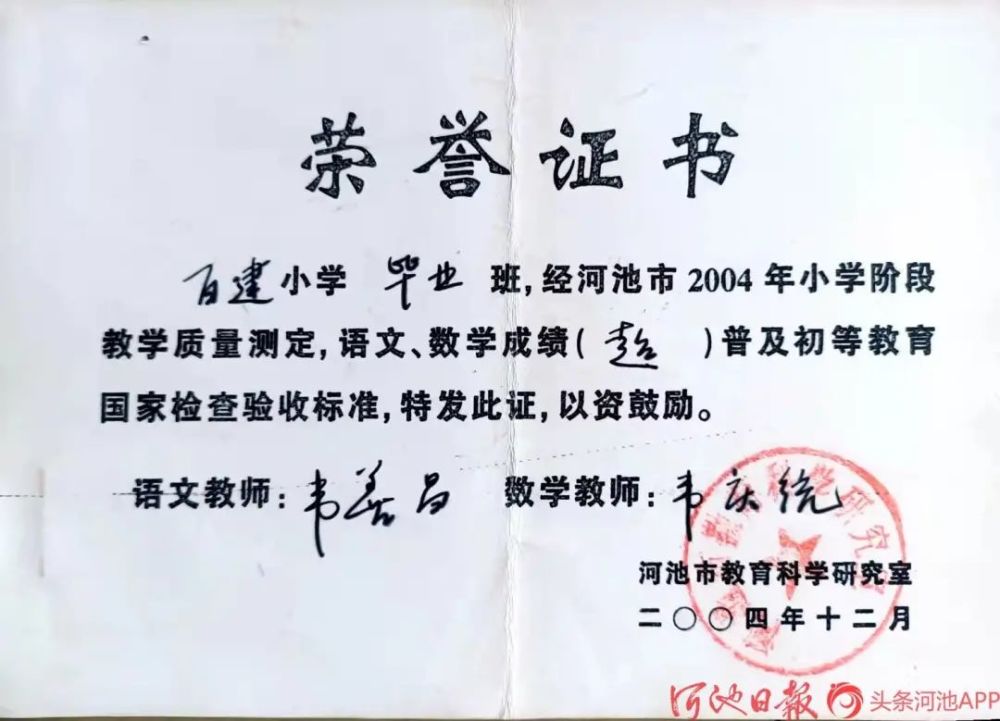 荣誉证书
百建小学 毕业 班,经河池市2004年小学阶段
教学质量测定,语文、数学成绩( 超 )普及初等教育
国家检查验收标准,特发此证,以资鼓励。
语文教师:韦善昌 数学教师:韦庆统
河池市教育科学研究室
二〇〇四年十二月
河池日报 头条河池APP